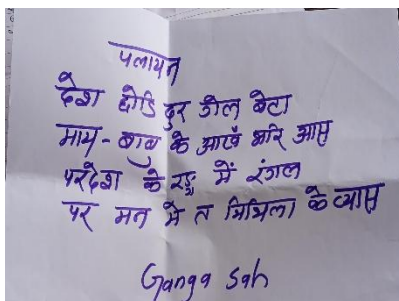 पलायन
देश छोडि दुर गेल बेटा
माय-बाबु के आखँ भरि आस
परदेश के रङ्ग में रंगल
पर मन मे त मिथिला के व्यास
Ganga Sah